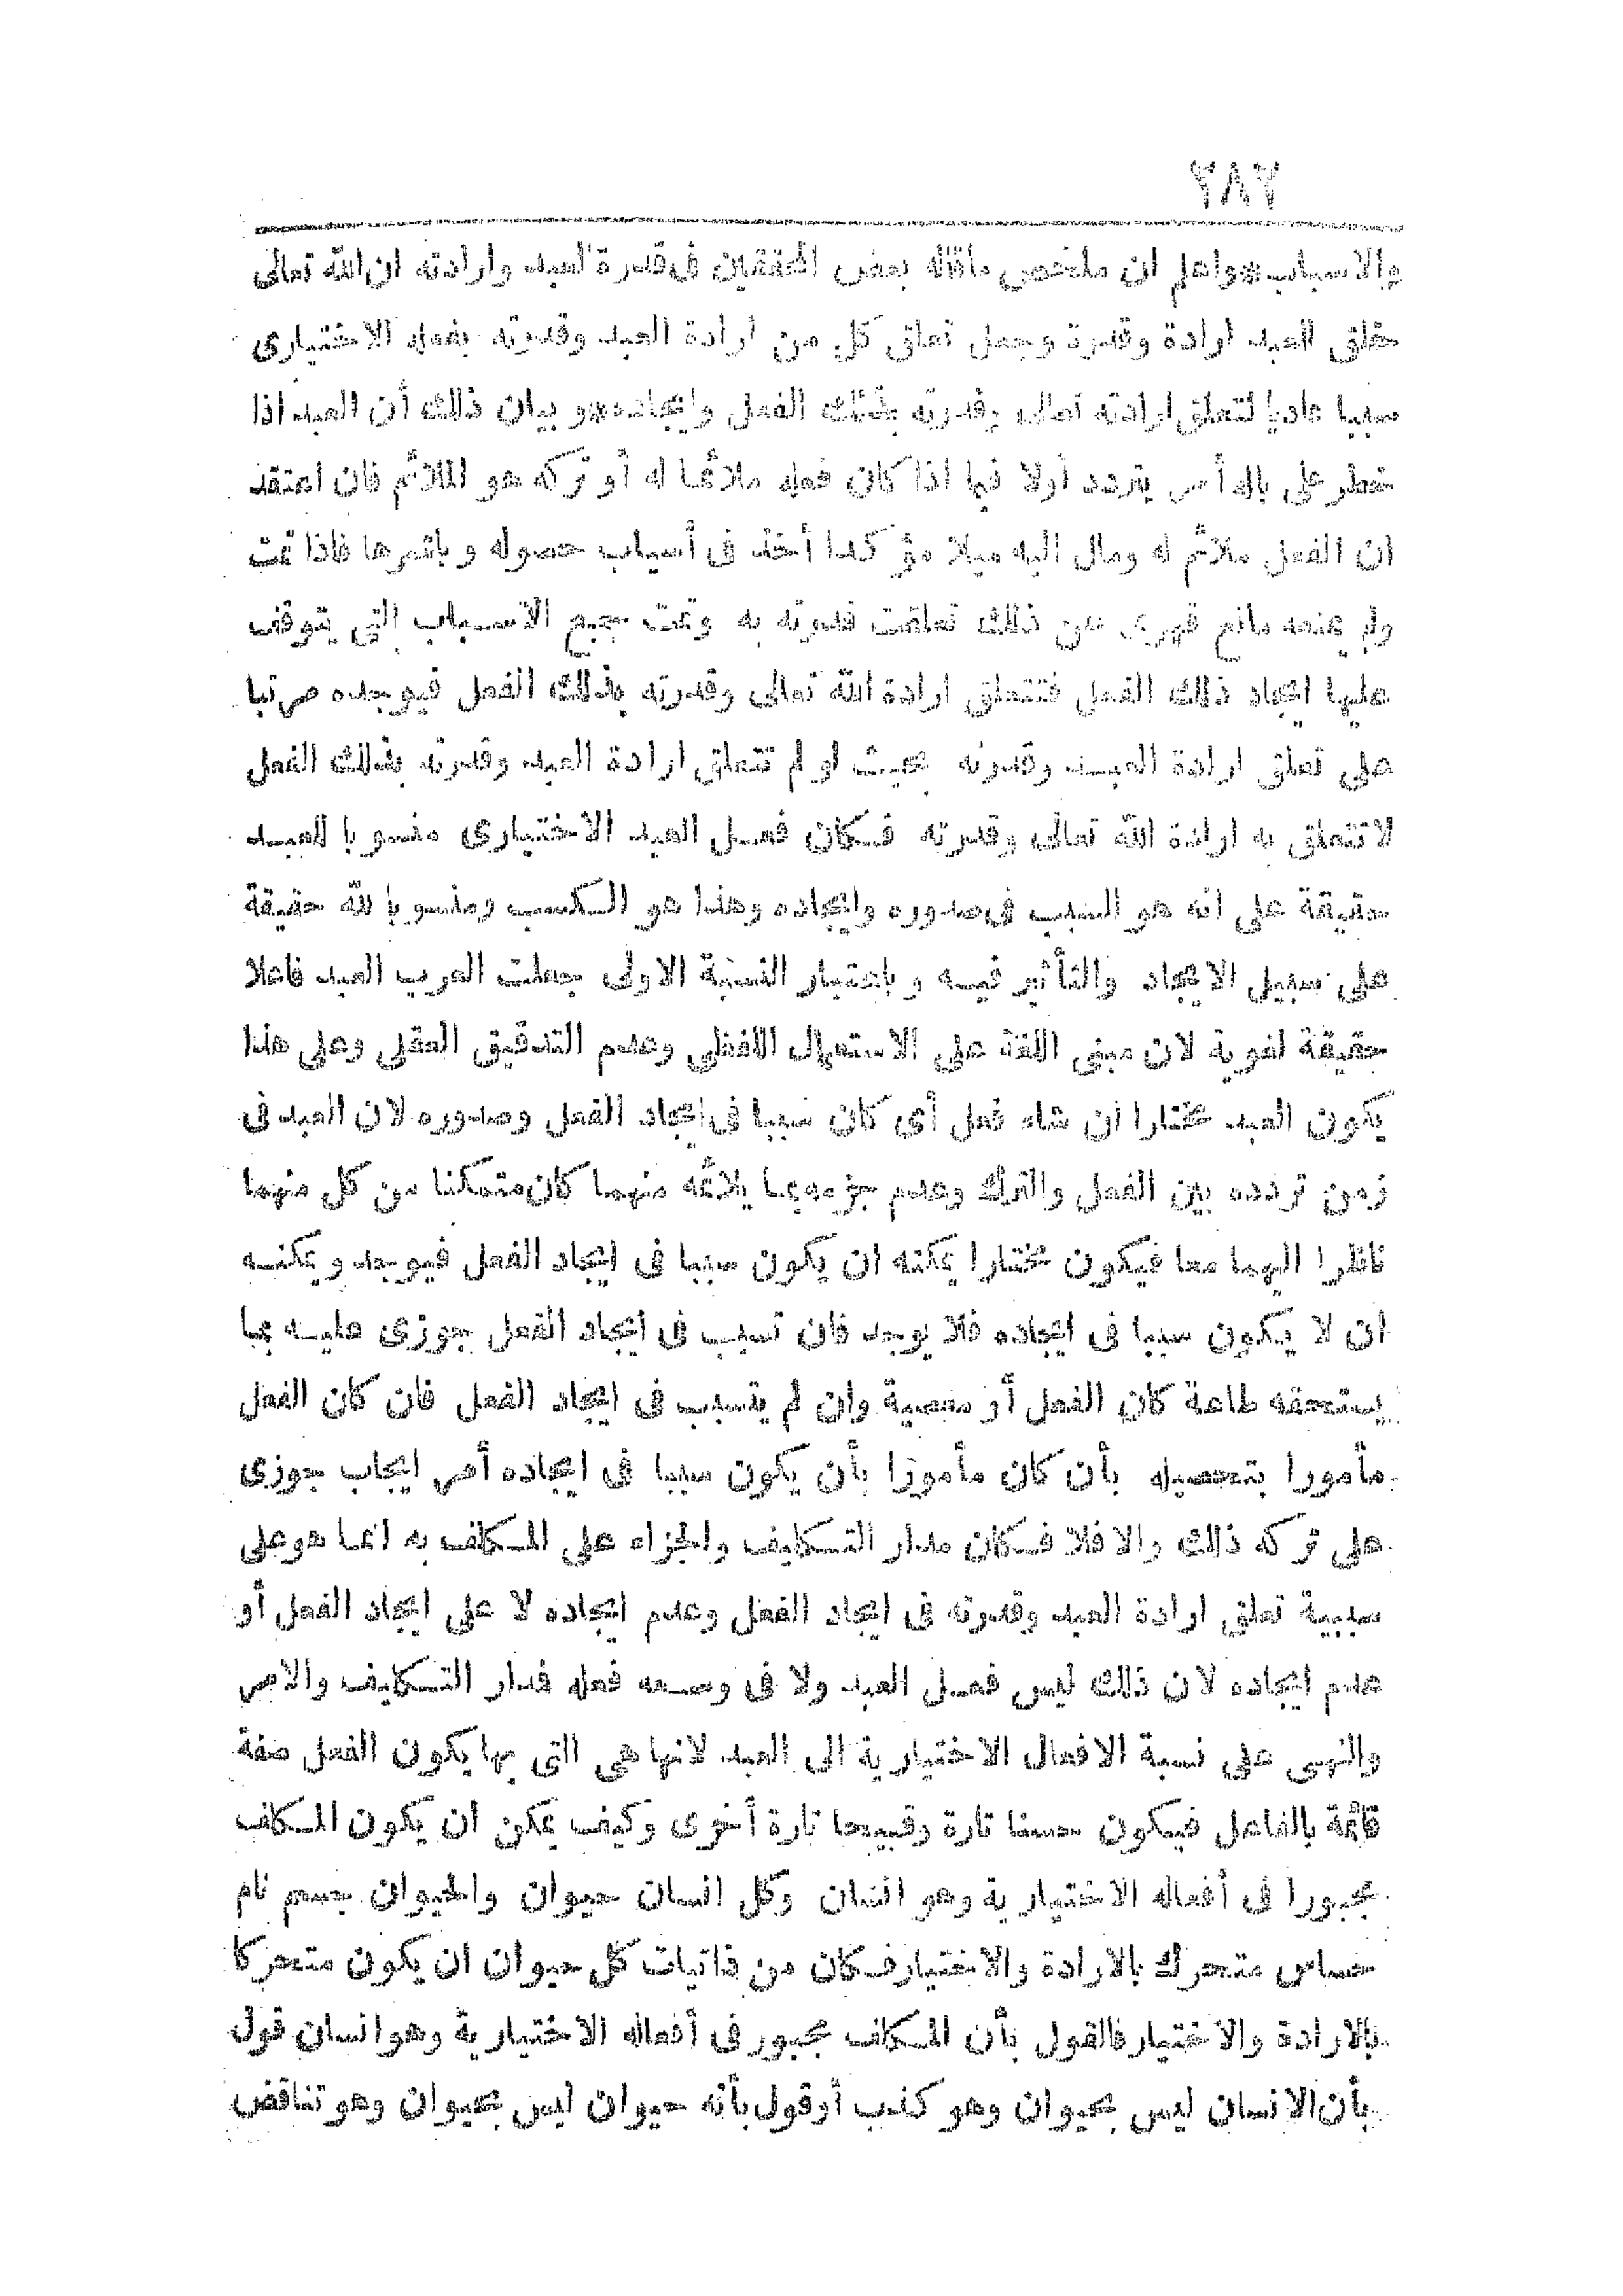 ٣٨٢
والاسباب * واعلم ان ملخص ماقاله بعض المحققين فى قدرة العبد وارادته ان الله تعالى
خلق للعبد ارادة وقدرة وجعل تعلق كل من ارادة العبد وقدرته بفعله الاختيارى
سببا عاديا لتعلق ارادته تعالى وقدرته بذلك الفعل وايجاده * وبيان ذلك أن العبد اذا
خطر على باله أمر يتردد أولا فيما اذا كان فعله ملائما له أو تركه هو الملائم فان اعتقد
ان الفعل ملائم له ومال اليه ميلا مؤكدا أخذ فى أسباب حصوله وباشرها فاذا تمت
ولم يمنعه مانع قهرى عن ذلك تعلقت قدرته به وتمت جميع الاسباب التى يتوقف
عليها ايجاد ذلك الفعل فتتعلق ارادة الله تعالى وقدرته بذلك الفعل فيوجده مرتبا
على تعلق ارادة العبد وقدرته بحيث لو لم تتعلق ارادة العبد وقدرته بذلك الفعل
لا تتعلق به ارادة الله تعالى وقدرته فكان فعل العبد الاختيارى منسوبا للعبد
حقيقة على انه هو السبب فى صدوره وايجاده وهذا هو الكسب ومنسوبا لله حقيقة
على سبيل الايجاد والتأثير فيه وباعتبار النسبة الاولى جعلت العرب العبد فاعلا
حقيقة لغوية لان مبنى اللغة على الاستعمال اللفظى وعدم التدقيق العقلى وعلى هذا
يكون العبد مختارا ان شاء فعل أى كان سببا فى ايجاد الفعل وصدوره لان العبد فى
زمن تردده بين الفعل والترك وعدم جزمه بما يلائمه منهما كان متمكنا من كل منهما
ناظرا اليهما معا فيكون مختارا يمكنه ان يكون سببا فى ايجاد الفعل فيوجد ويمكنه
ان لا يكون سببا فى ايجاده فلا يوجد فان تسبب فى ايجاد الفعل جوزى عليه بما
يستحقه طاعة كان الفعل أو معصية وان لم يتسبب فى ايجاد الفعل فان كان الفعل
مأمورا بتحصيله بأن كان مأمورا بأن يكون سببا فى ايجاده أمر ايجاب جوزى
على تركه ذلك والا فلا فكان مدار التكليف والجزاء على المكلف به انما هو على
سببية تعلق ارادة العبد وقدرته فى ايجاد الفعل وعدم ايجاده لا على ايجاد الفعل أو
عدم ايجاده لان ذلك ليس فعل العبد ولا فى وسعه فعله فدار التكليف والامر
والنهى على نسبة الافعال الاختيارية الى العبد لانها هى التى بها يكون الفعل صفة
قائمة بالفاعل فيكون حسنا تارة وقبيحا تارة أخرى وكيف يمكن ان يكون المكلف
مجبورا فى أفعاله الاختيارية وهو انسان وكل انسان حيوان والحيوان جسم نام
حساس متحرك بالارادة والاختيار فكان من ذاتيات كل حيوان ان يكون متحركا
بالارادة والاختيار فالقول بأن المكلف مجبور فى أفعاله الاختيارية وهو انسان قول
بأن الانسان ليس بحيوان وهو كذب أو قول بأنه حيوان ليس بحيوان وهو تناقض